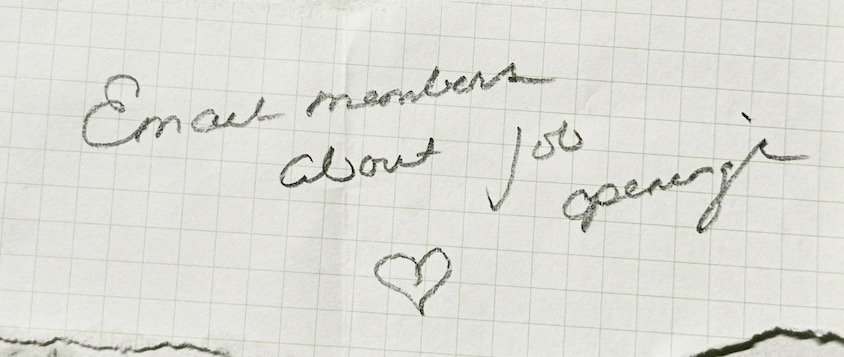 Email members
about job
openings